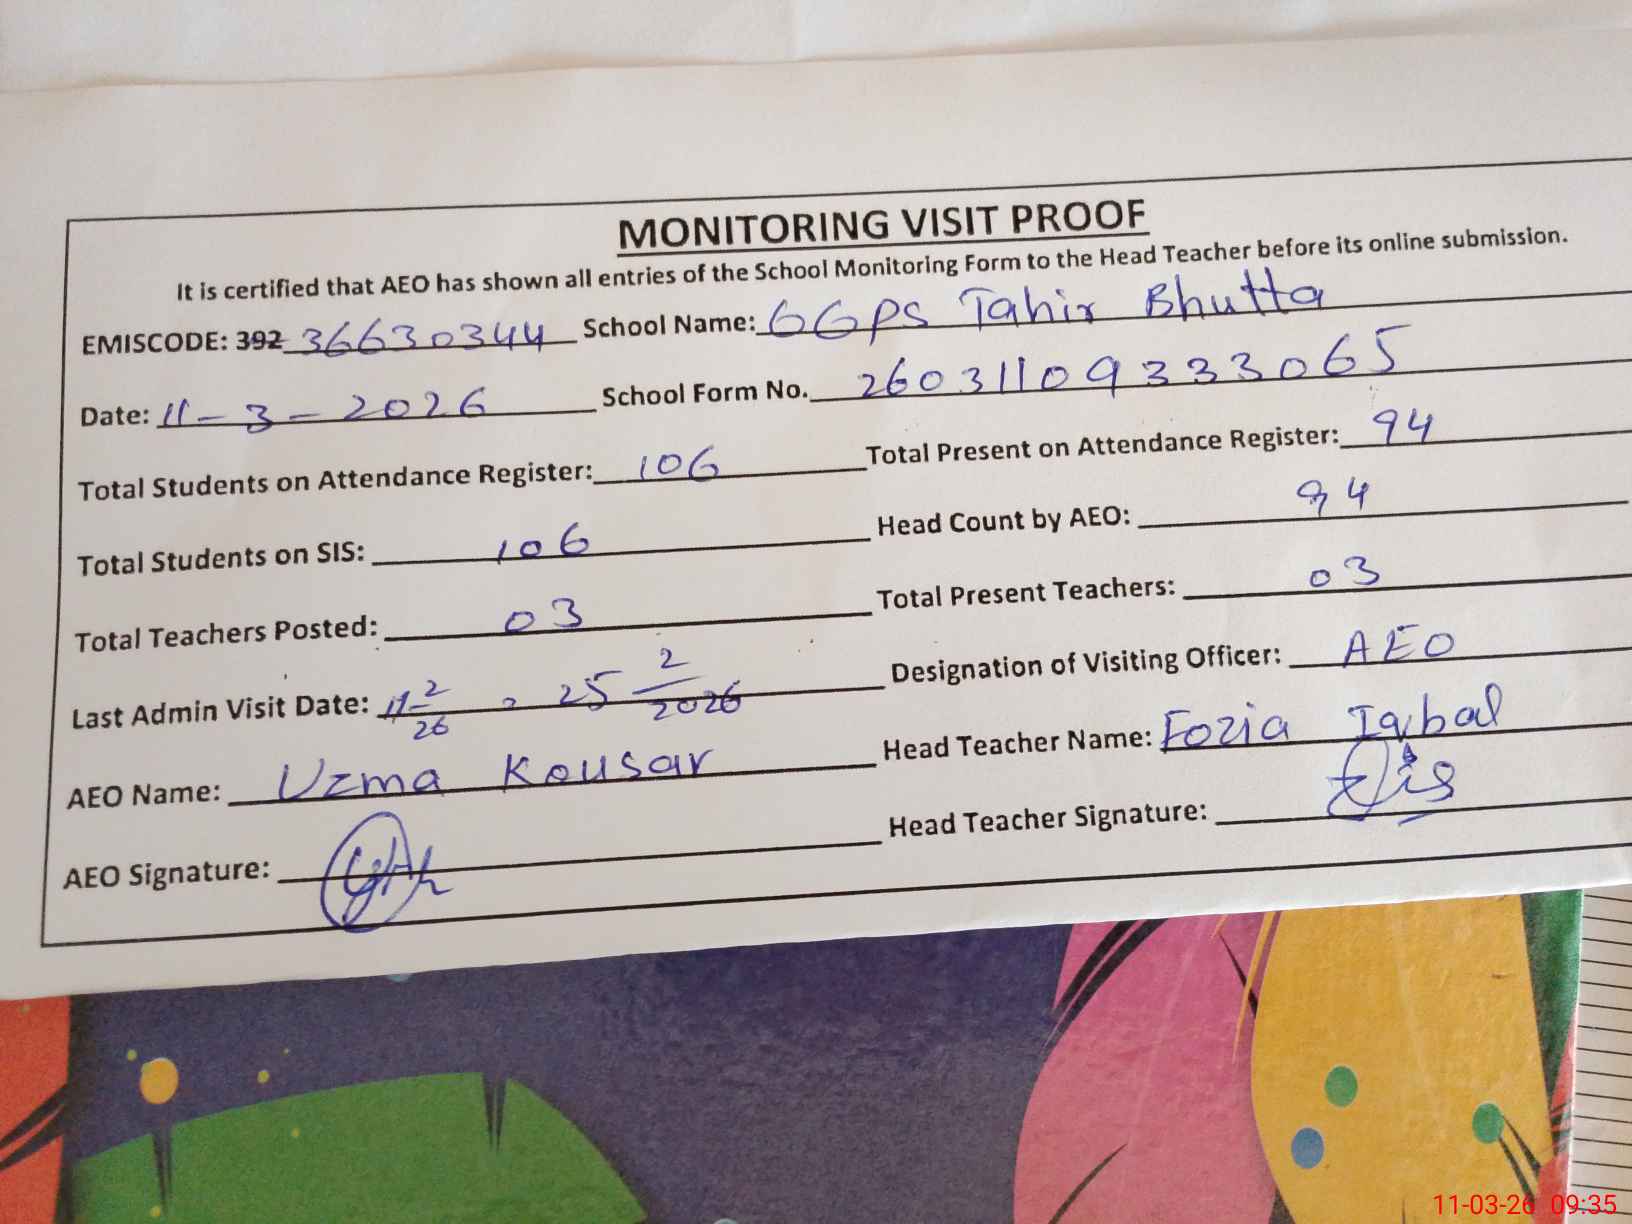 MONITORING VISIT PROOF
It is certified that AEO has shown all entries of the School Monitoring Form to the Head Teacher before its online submission.
EMISCODE: 392 36630344 School Name: GGPS Tahir Bhutta
Date: 11-3-2026 School Form No. 26031109333065
Total Students on Attendance Register: 106 Total Present on Attendance Register: 94
Total Students on SIS: 106 Head Count by AEO: 94
Total Teachers Posted: 03 Total Present Teachers: 03
Last Admin Visit Date: 11-2/26 , 25 2/2026 Designation of Visiting Officer: AEO
AEO Name: Uzma Kousar Head Teacher Name: Fozia Iqbal
AEO Signature: Head Teacher Signature:
11-03-26 09:35